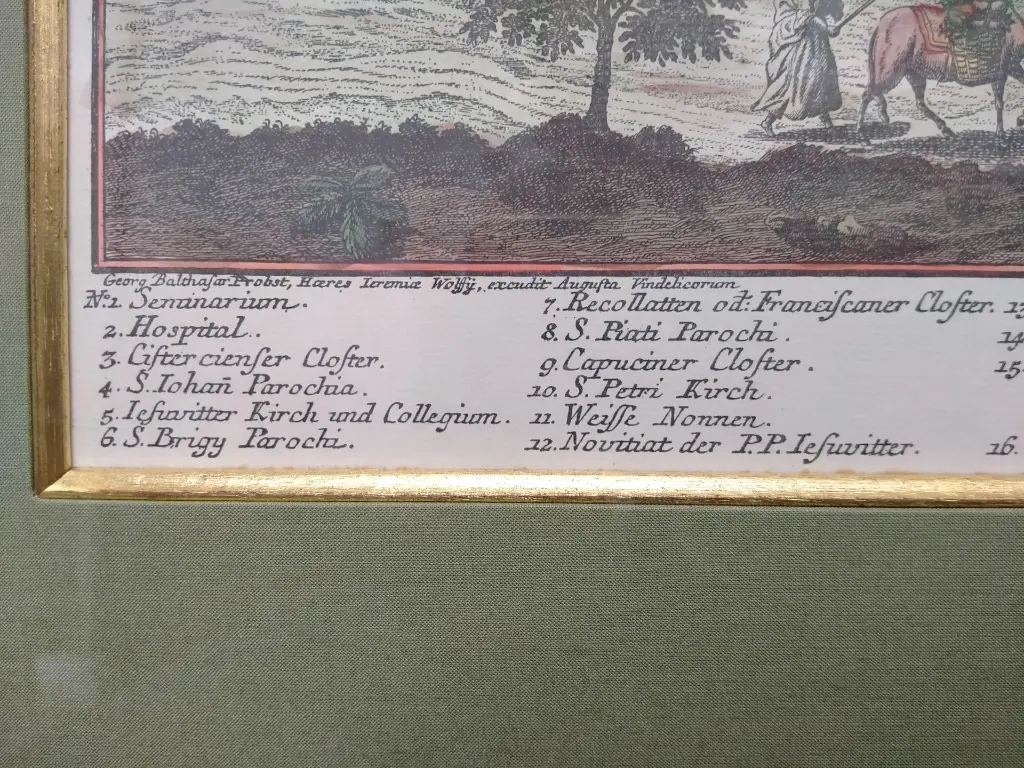 Georg Balthasar Probst, Hæres Ieremiæ Wolffÿ, excudit Augusta Vindelicorum
No. 1 Seminarium.
2. Hospital.
3. Cistercienser Closter.
4. S. Iohan̄ Parochia.
5. Iesuwitter Kirch und Collegium.
6. S. Brigy Parochi.
7. Recollatten od: Franciscaner Closter.
8. S. Piati Parochi.
9. Capuciner Closter.
10. S. Petri Kirch.
11. Weisse Nonnen.
12. Novitiat der P.P. Iesuwitter.
13
14
15.
16.